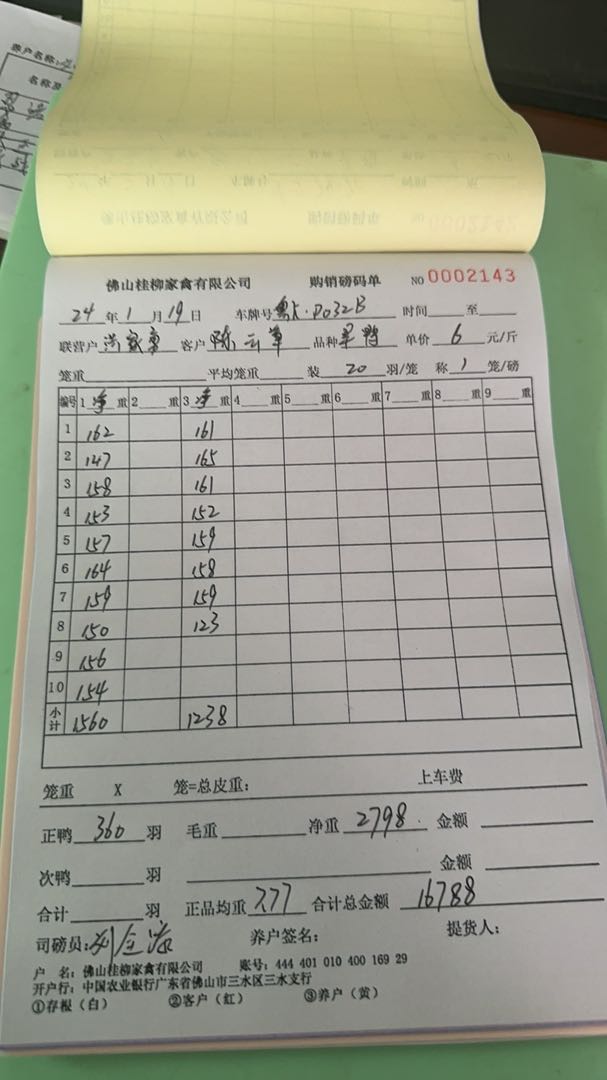 养户名称:
佛山桂柳家禽有限公司 购销磅码单 NO 0002143
24 年 1 月 19 日 车牌号 时间 至
联营户 客户 陈云 品种 单价 6 元/斤
笼重 平均笼重 装 20 羽/笼 称 1 笼/磅
编号 1 净 重 2 重 3 净 重 4 重 5 重 6 重 7 重 8 重 9 重
1 162 161
2 147 165
3 158 161
4 153 152
5 157 159
6 164 158
7 159 159
8 150 123
9 156
10 154
小计 1560 1238
笼重 X 笼=总皮重: 上车费
正鸭 360 羽 毛重 净重 2798 金额
次鸭 羽 金额
合计 羽 正品均重 7.77 合计总金额 16788
司磅员: 养户签名: 提货人:
户 名: 佛山桂柳家禽有限公司 账号: 444 401 010 400 169 29
开户行: 中国农业银行广东省佛山市三水区三水支行
①存根（白） ②客户（红） ③养户（黄）